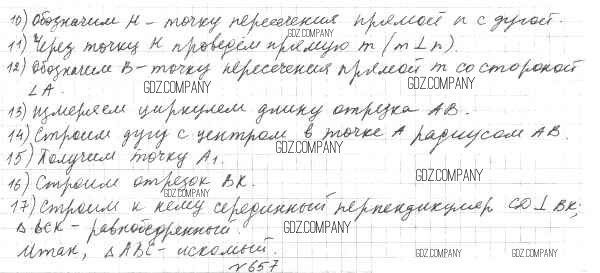 10) Обозначим H – точку пересечения прямой n с дугой.
GDZ.COMPANY
11) Через точку H проведём прямую m (m⊥n).
12) Обозначим B – точку пересечения прямой m со стороной
∠A.
GDZ.COMPANY GDZ.COMPANY
13) Измеряем циркулем длину отрезка AB.
14) Строим дугу с центром в точке A радиусом AB.
GDZ.COMPANY
15) Получим точку A₁.
16) Строим отрезок BK.
GDZ.COMPANY GDZ.COMPANY
17) Строим к нему серединный перпендикуляр CD⊥BK;
△BCK – равнобедренный.
GDZ.COMPANY
Итак, △ABC – искомый.
GDZ.COMPANY GDZ.COMPANY
№657